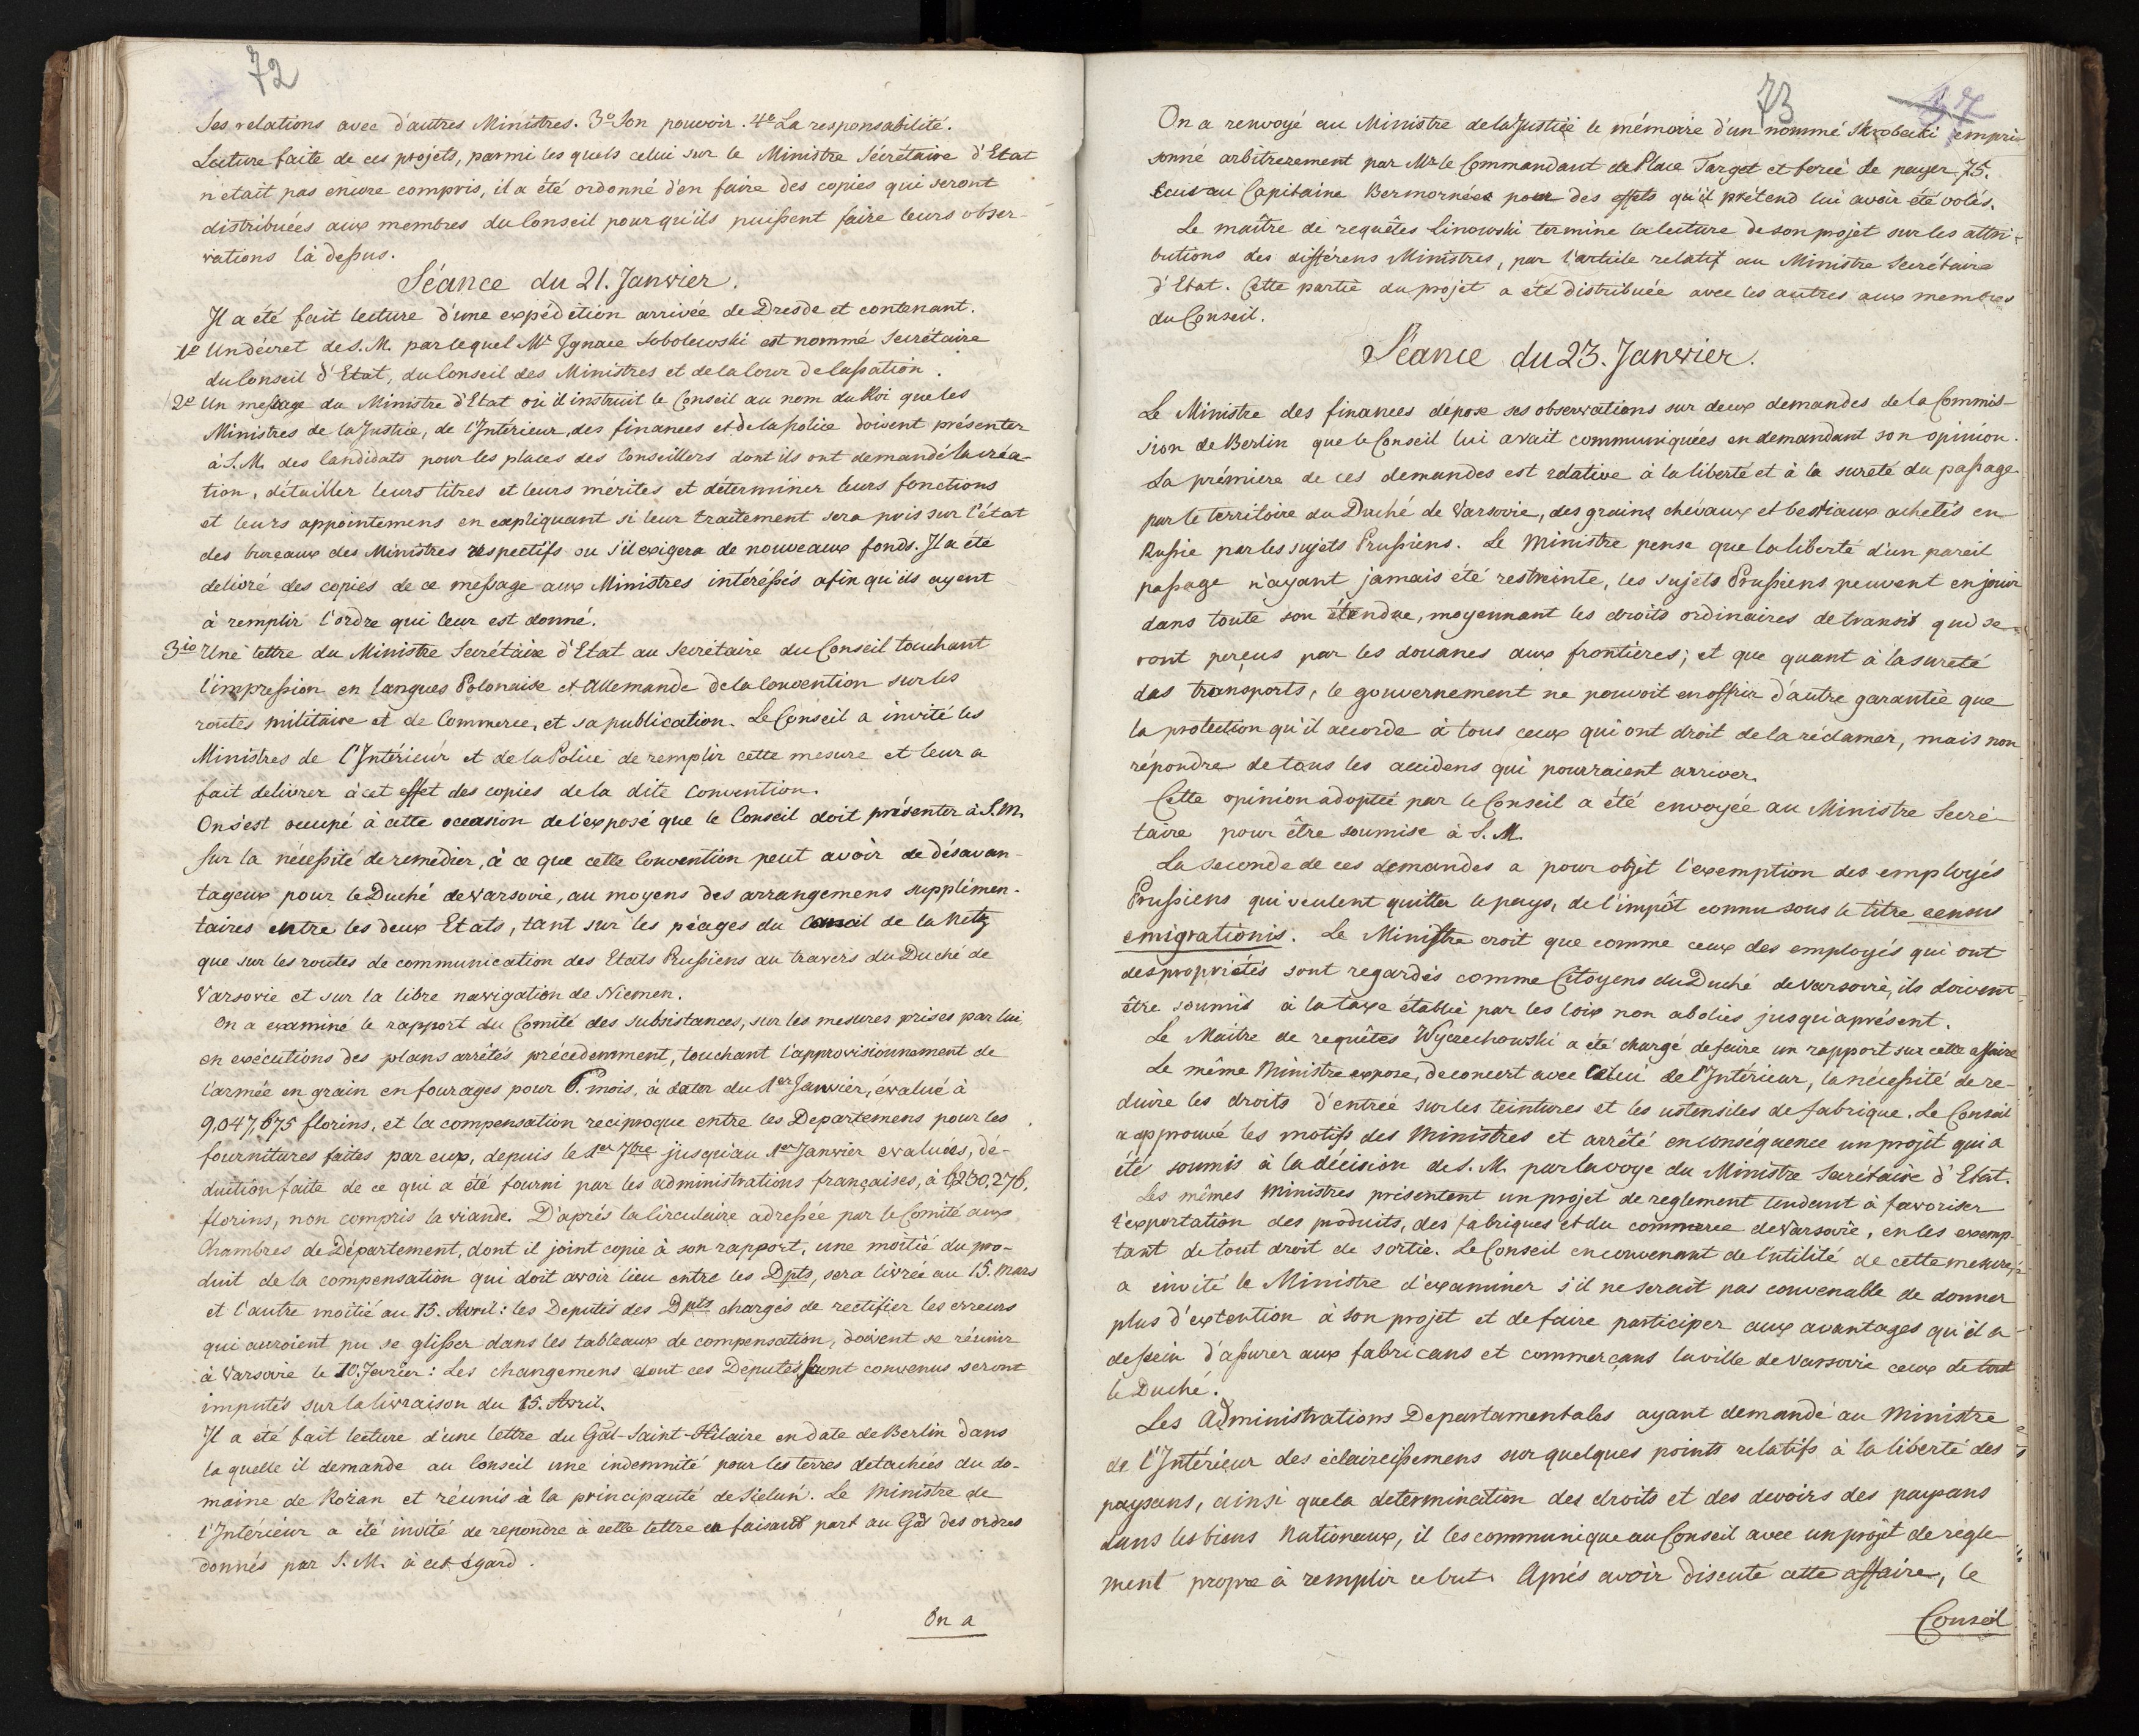 72
Ses relations avec d'autres Ministres. 3o Son pouvoir. 4o La responsabilité.
Lecture faite de ces projets, parmi les quels celui sur le Ministre Sécrétaire d'Etat
n'etait pas encore compris, il a été ordonné d'en faire des copies qui seront
distribuées aux membres du Conseil pour qu'ils puissent faire leurs obser-
vations là dessus.
Séance du 21. Janvier.
Il a été fait lecture d'une expédition arrivée de Dresde et contenant.
1o Un décret de S. M. par lequel Mr Ignace Sobolewski est nommé Secrétaire
du Conseil d'Etat, du Conseil des Ministres et de la Cour de Cassation.
2o Un message du Ministre d'Etat où il instruit le Conseil au nom du Roi que les
Ministres de la Justice, de l'Interieur, des finances et de la police doivent présenter
à S. M. des Candidats pour les places des Conseillers dont ils ont demandé la créa-
tion, détailler leurs titres et leurs mérites et déterminer leurs fonctions
et leurs appointemens en expliquant si leur traitement sera pris sur l'état
des bureaux des Ministres respectifs ou s'il exigera de nouveaux fonds. Il a été
delivré des copies de ce message aux Ministres intéréssés afin qu'ils ayent
à remplir l'ordre qui leur est donné.
3io Une lettre du Ministre Secrétaire d'Etat au Secrétaire du Conseil touchant
l'impression en langues Polonaise et Allemande de la Convention sur les
routes militaire et de Commerce, et sa publication. Le Conseil a invité les
Ministres de l'Intérieur et de la Police de remplir cette mesure et leur a
fait delivrer à cet effet des copies de la dite Convention.
On s'est occupé à cette occasion de l'exposé que le Conseil doit présenter à S. M.
sur la nécessité de remedier, à ce que cette Convention peut avoir de désavan-
tageux pour le Duché de Varsovie, au moyens des arrangemens supplémen-
taires entre les deux Etats, tant sur les péages du Canal de la Netz
que sur les routes de communication des Etats Prussiens au travers du Duché de
Varsovie et sur la libre navigation de Niemen.
On a examiné le rapport du Comité des subsistances, sur les mesures prises par lui
en exécutions des plans arrêtés précedemment, touchant l'approvisionnement de
l'armée en grain en fourages pour 6. mois, à dater du 1er Janvier, évalué à
9,047,675 florins, et la compensation reciproque entre les Departemens pour les
fournitures faites par eux, depuis le 1er 7bre jusqu'au 1er Janvier evaluées, dé-
duction faite de ce qui a été fourni par les administrations françaises, à 6,230,276.
florins, non compris la viande. D'aprés la Circulaire adressée par le Comité aux
Chambres de Département, dont il joint copie à son rapport, une moitié du pro-
duit de la compensation qui doit avoir lieu entre les Dpts, sera livrée au 15. Mars
et l'autre moitié au 15. Avril: les Deputés des Dpts chargés de rectifier les erreurs
qui auroient pu se glisser dans les tableaux de compensation, doivent se réunir
à Varsovie le 10. Fevrier: Les changemens dont ces Deputés sont convenus seront
imputés sur la livraison du 15. Avril.
Il a été fait lecture d'une lettre du Gãl-Saint-Hilaire en date de Berlin dans
la quelle il demande au Conseil une indemnité pour les terres detachées du do-
maine de Rożan et réunis à la principauté de Sieluń. Le Ministre de
l'Intérieur a été invité de repondre à cette lettre en faisant part au Gãl des ordres
donnés par S. M. à cet égard.
On a
73
On a renvoyé au Ministre de la Justice le mémoire d'un nommé empri-
sonné arbitrerement par Mr le Commandant de Place Target et forcé de payer 75.
Ecus au Capitaine pour des effets qu'il prétend lui avoir été volés.
Le maître de requêtes Linowski termine la lecture de son projet sur les attri-
butions des différens Ministres, par l'article relatif au Ministre Secrétaire
d'Etat. Cette partie du projet a été distribuée avec les autres aux membres
du Conseil.
Séance du 23. Janvier.
Le Ministre des finances dépose ses observations sur deux demandes de la Commis-
sion de Berlin que le Conseil lui avait communiquées en demandant son opinion.
La prémiere de ces demandes est relative à la liberté et à la sureté du passage
par le territoire du Duché de Varsovie, des grains, chévaux et bestiaux achetés en
Russie par les sujets Prussiens. Le Ministre pense que la liberté d'un pareil
passage n'ayant jamais été restreinte, les sujets Prussiens peuvent en jouir
dans toute son étendue, moyennant les droits ordinaires de transit qui se-
ront perçus par les douanes aux frontières; et que quant à la sureté
des transports, le gouvernement ne pouvoit en offrir d'autre garantie que
la protection qu'il accorde à tous ceux qui ont droit de la réclamer, mais non
répondre de tous les accidens qui pourraient arriver.
Cette opinion adoptée par le Conseil a été envoyée au Ministre Secré-
taire pour être soumise à S. M.
La seconde de ces demandes a pour objet l'exemption des employés
Prussiens qui veulent quitter le pays, de l'impôt connu sous le titre census
emigrationis. Le Ministre croit que comme ceux des employés qui ont
des propriétés sont regardés comme Citoyens du Duché de Varsovie, ils doivent
être soumis à la taxe établie par les loix non abolies jusqu'aprésent.
Le Maitre de requêtes Wyczechowski a été chargé de faire un rapport sur cette affaire
Le même Ministre expose, de concert avec Celui de l'Intérieur, la nécessité de re-
duire les droits d'entrée sur les teintures et les ustensiles de fabrique. Le Conseil
a approuvé les motifs des Ministres et arrêté en conséquence un projet qui a
été soumis à la décision de S. M. par la voye du Ministre Secrétaire d'Etat.
Les mêmes Ministres présentent un projet de reglement tendant à favoriser
l'exportation des produits, des fabriques et du commerce de Varsovie, en les exemp-
tant de tout droit de sortie. Le Conseil en convenant de l'utilité de cette mesure,
a invité le Ministre d'examiner s'il ne serait pas convenable de donner
plus d'extention à son projet et de faire participer aux avantages qu'il a
dessein d'assurer aux fabricans et commerçans la ville de Varsovie ceux de tout
le Duché.
Les Administrations Departamentales ayant demandé au Ministre
de l'Intérieur des éclaircissemens sur quelques points relatifs à la liberté des
paysans, ainsi que la determination des droits et des devoirs des paysans
dans les biens Nationaux, il les communique au Conseil avec un projet de régle-
ment propre à remplir ce but. Aprés avoir discuté cette affaire, le
Conseil